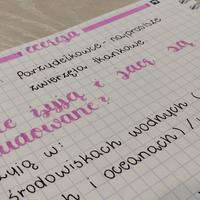 Parzydełkowce - najprostsze
zwierzęta tkankowe
żyją i jak są
zbudowane?
żyją w:
środowiskach wodnych (
h i oceanach) /